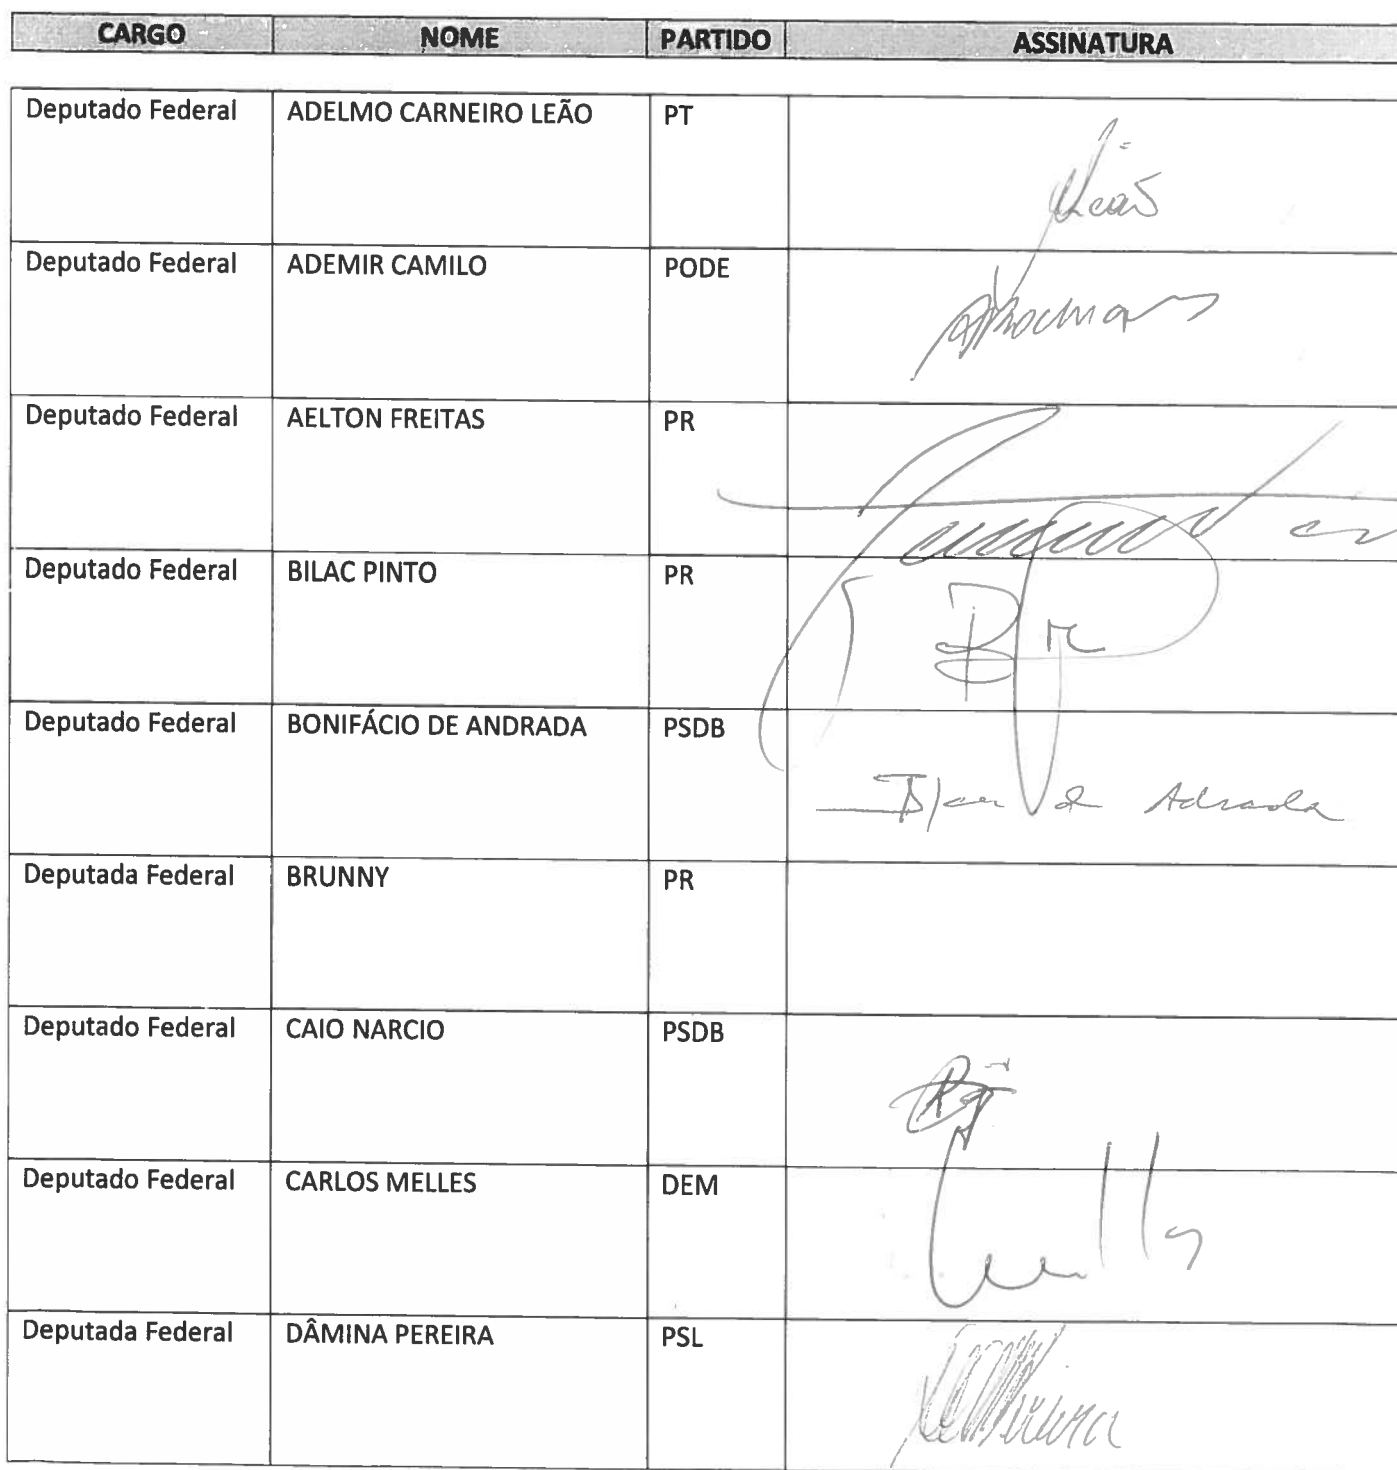 CARGO NOME PARTIDO ASSINATURA
Deputado Federal ADELMO CARNEIRO LEÃO PT Leão
Deputado Federal ADEMIR CAMILO PODE
Deputado Federal AELTON FREITAS PR
Deputado Federal BILAC PINTO PR
Deputado Federal BONIFÁCIO DE ANDRADA PSDB
Deputada Federal BRUNNY PR
Deputado Federal CAIO NARCIO PSDB
Deputado Federal CARLOS MELLES DEM
Deputada Federal DÂMINA PEREIRA PSL